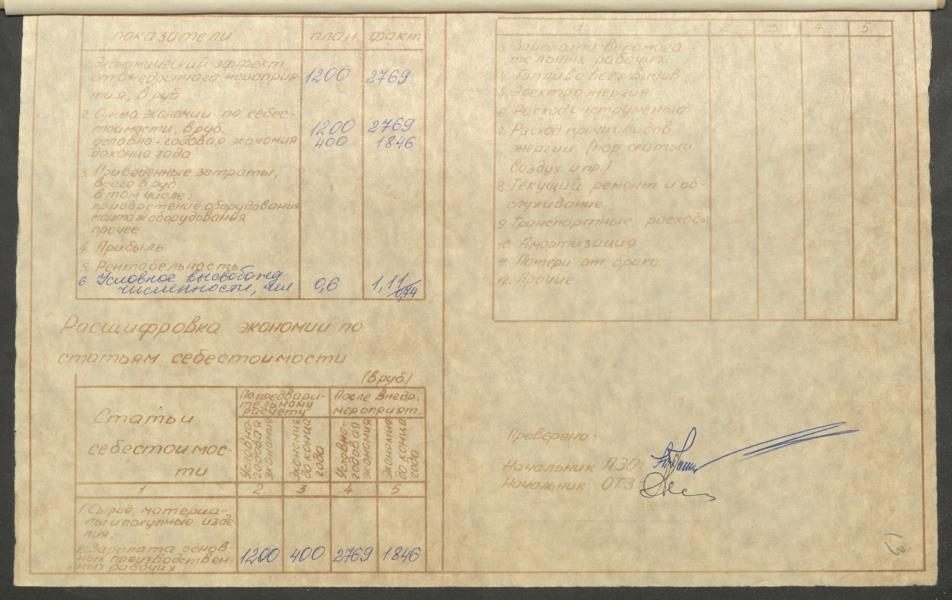 показатели план факт
1. Экономический эффект
от внедренного мероприя- 1200 2769
тия, в руб
2. Сумма экономии по себес-
тоимости, в руб. 1200 2769
условно-годовая экономия 400 1846
до конца года
3. Приведенные затраты,
всего в руб
в том числе:
приобретение оборудования
монтаж оборудования
прочее
4. Прибыль
5. Рентабельность
6 Условное высвобожд
численности, чел 0,6 1,11/0,74
Расшифровка экономии по
статьям себестоимости
(в руб)
Статьи себестоимос-
ти
По предвари-
тельному
расчету
После внедр.
мероприят.
Условно-
годовая
экономия
Экономия
до конца
года
Условно-
годовая
экономия
Экономия
до конца
года
1 2 3 4 5
1. Сырье, материа-
лы и покупные изде-
лия.
2. Зарплата основ-
ных производствен- 1200 400 2769 1846
ных рабочих
1 2 3 4 5
3. Зарплата вспомога-
тельных рабочих
4. Топливо всех видов
5. Электроэнергия
6. Расход инструмента
7. Расход прочих видов
энергии (пар, сжатый
воздух и пр.)
8. Текущий ремонт и об-
служивание
9. Транспортные расходы
10. Амортизация
11. Потери от брака
12. Прочие
Проверено:
Начальник ПЭО:
Начальник ОТЗ: